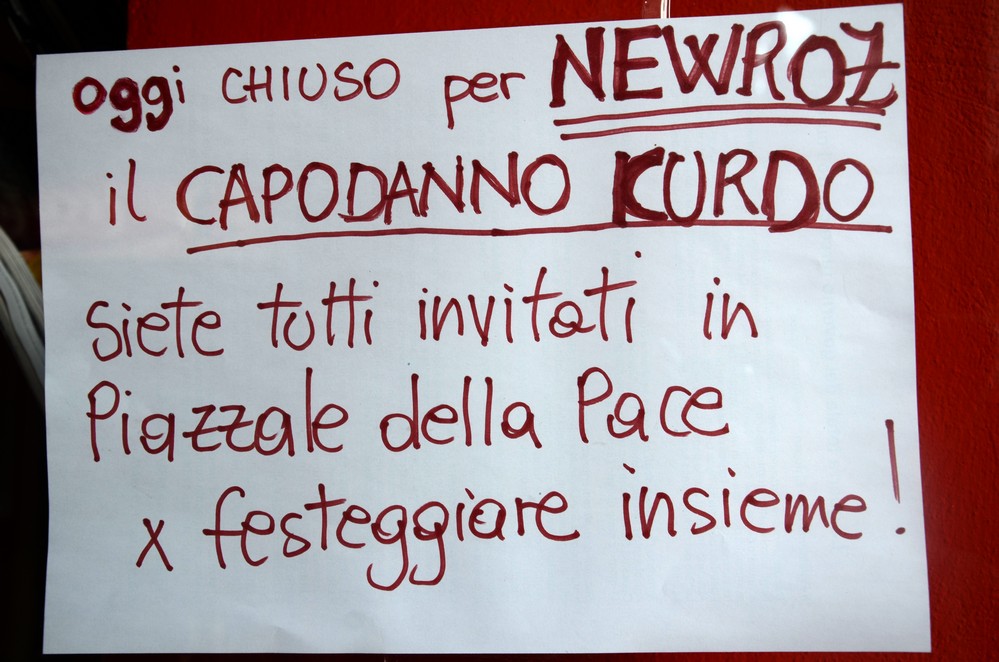 oggi CHIUSO per NEWROZ
il CAPODANNO KURDO
Siete tutti invitati in
Piazzale della Pace
x festeggiare insieme!